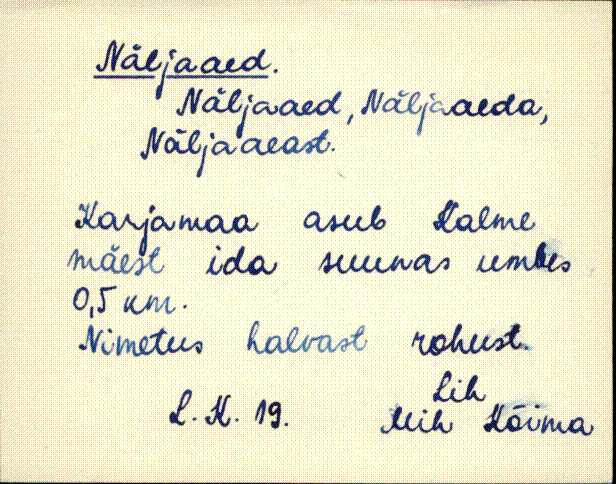 Näljaaed.
Näljaaed, Näljaaeda,
Näljaaeast.
Karjamaa asub Kalme
mäest ida suunas umbes
0,5 km.
Nimetus halvast rohust.
Lih
L. K. 19.
Mih Kõima